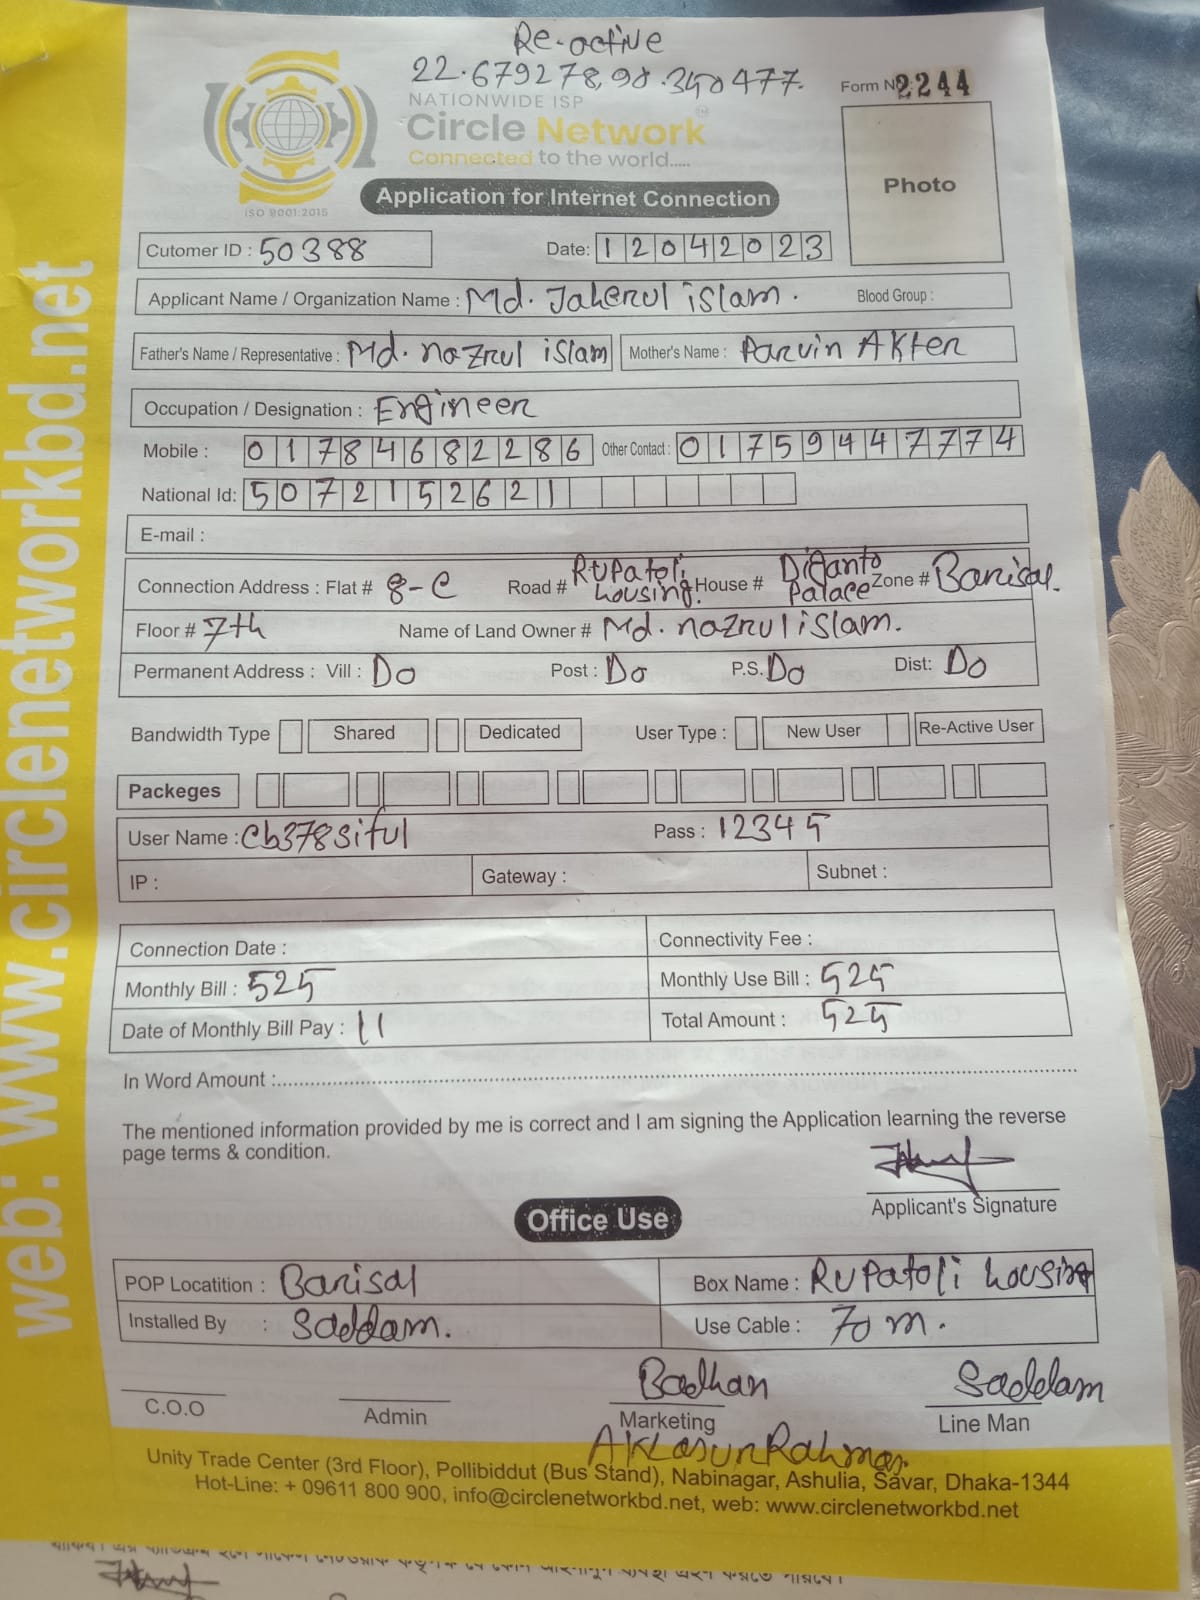 Re-active
22.679278,90.340477.
NATIONWIDE ISP
Form No 2244
Circle Network
Connected to the world.....
ISO 9001:2015
Application for Internet Connection
Photo
Cutomer ID : 50388 Date: 12042023
Applicant Name / Organization Name : Md. Jaherul islam. Blood Group :
Father's Name / Representative : Md. nazrul islam Mother's Name : Parvin Akter
Occupation / Designation : Engineer
Mobile : 01784682286 Other Contact : 01759447774
National Id: 5072152621
E-mail :
Connection Address : Flat # 8-C Road # Rupatoli housing. House # Diganto Palace Zone # Barisal.
Floor # 7th Name of Land Owner # Md. nazrul islam.
Permanent Address : Vill : Do Post : Do P.S. Do Dist: Do
Bandwidth Type Shared Dedicated User Type : New User Re-Active User
Packeges
User Name : Cb378siful Pass : 12345
IP : Gateway : Subnet :
Connection Date : Connectivity Fee :
Monthly Bill : 525 Monthly Use Bill : 525
Date of Monthly Bill Pay : 11 Total Amount : 525
In Word Amount :
The mentioned information provided by me is correct and I am signing the Application learning the reverse
page terms & condition.
Applicant's Signature
Office Use
POP Locatition : Barisal Box Name : Rupatoli housing
Installed By : Saddam. Use Cable : 70 m.
Badhan Saddam
C.O.O Admin Marketing Line Man
Aklasur Rahman
Unity Trade Center (3rd Floor), Pollibiddut (Bus Stand), Nabinagar, Ashulia, Savar, Dhaka-1344
Hot-Line: + 09611 800 900, info@circlenetworkbd.net, web: www.circlenetworkbd.net
web: www.circlenetworkbd.net